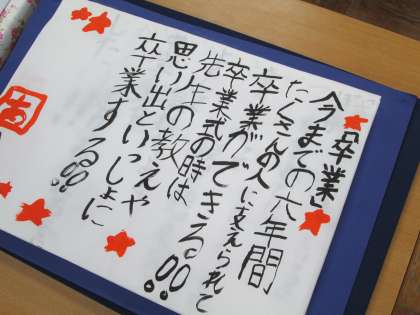 「卒業」
今までの六年間
たくさんの人に支えられて
卒業ができる!!
卒業式の時は
先生の教えや
思い出といっしょに
卒業する!!